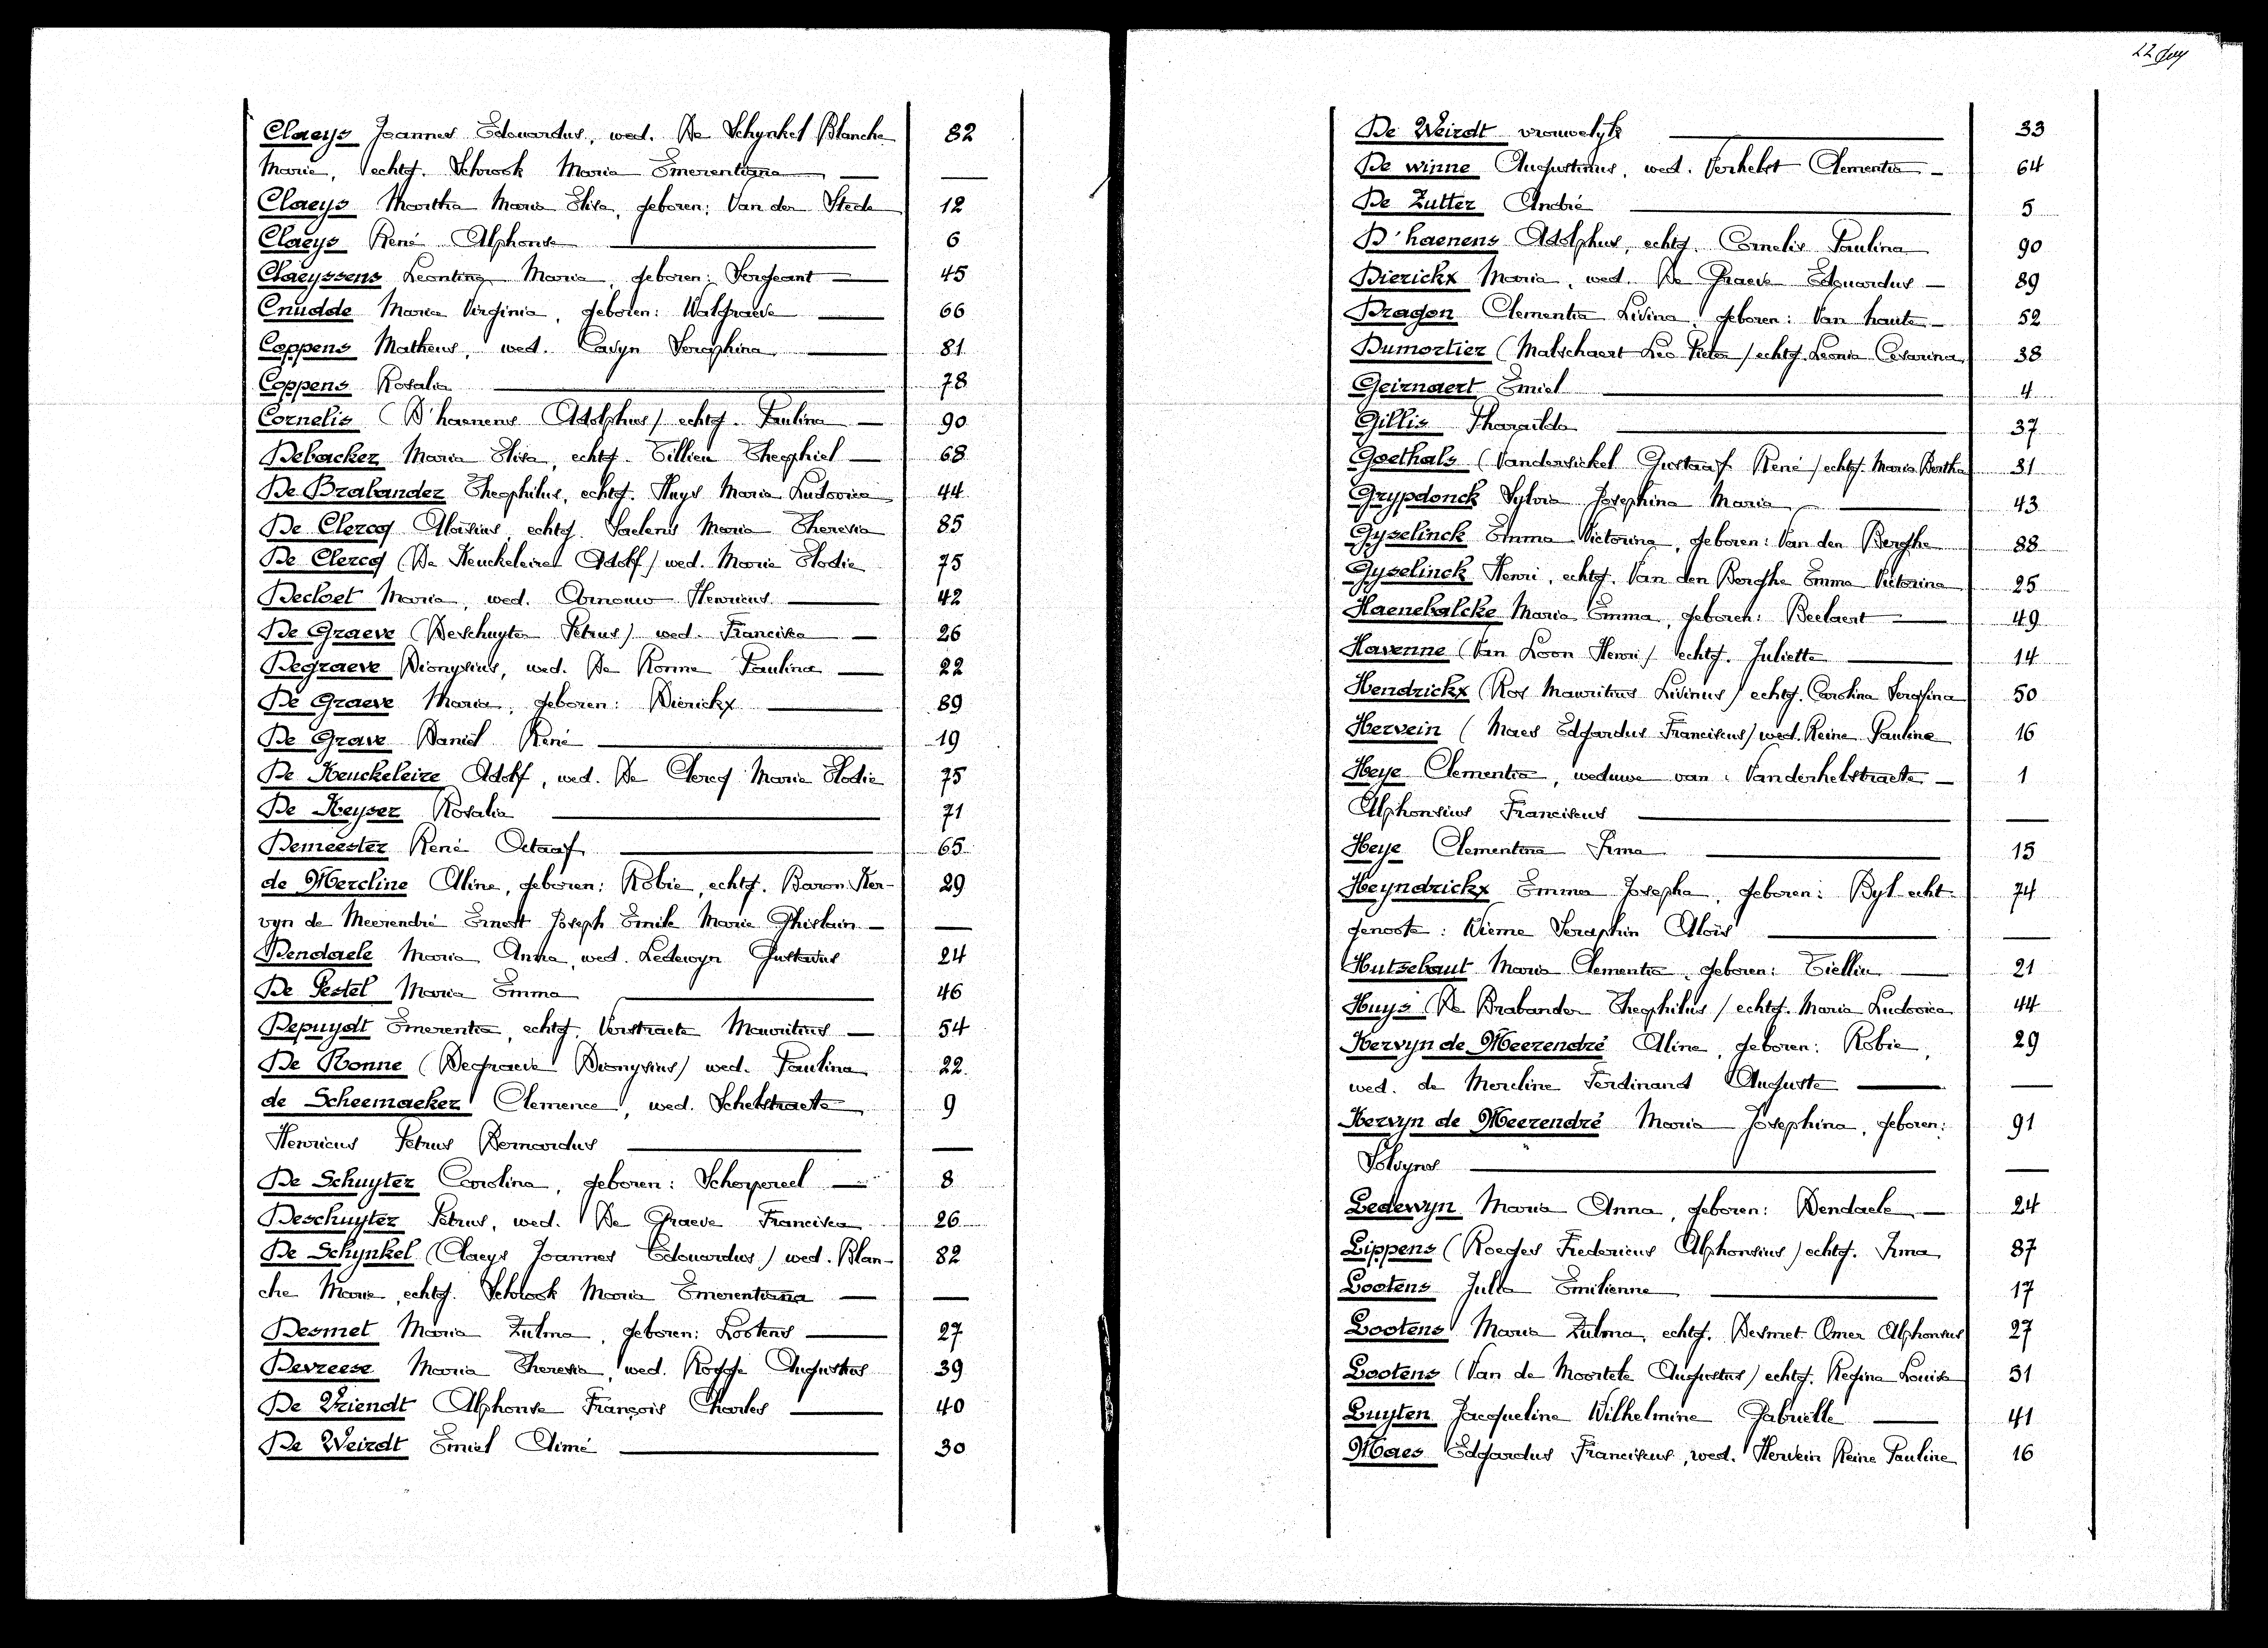 Claeys Joannes Edouardus, wed. De Schynkel Blanche 82
Marie, echtg. Schrook Maria Emerentiana —
Claeys Martha Maria Elisa, geboren: Van der Stede 12
Claeys René Alphonse 6
Claeyssens Leontina Maria, geboren: Sergeant 45
Cnudde Maria Virginia, geboren: Walgraeve 66
Coppens Matheus, wed. Casyn Seraphina 81
Coppens Rosalia 78
Cornelis (D'haenens Adolphus) echtg. Paulina 90
Debacker Maria Elisa, echtg. Tillieu Theophiel 68
De Brabander Theophilus, echtg. Huys Maria Ludovica 44
De Clercq Aloïsius, echtg. Saelens Maria Theresia 85
De Clercq (De Keuckeleire Adolf) wed. Maria Elodie 75
Decloet Maria, wed. Arnouw Henricus 42
De Graeve (Deschuyter Petrus) wed. Francisca 26
Degraeve Dionysius, wed. De Ronne Paulina 22
De Graeve Maria, geboren: Dierickx 89
De Grave Daniël René 19
De Keuckeleire Adolf, wed. De Clercq Maria Elodie 75
De Keyser Rosalia 71
Demeester René Octaaf 65
de Mercline Aline, geboren: Robie, echtg. Baron Ker- 29
vyn de Meerendré Ernest Joseph Emile Marie Ghislain —
Dendaele Maria Anna, wed. Ledewyn Gustavus 24
De Pestel Maria Emma 46
Depuydt Emerentia, echtg. Verstraete Mauritius 54
De Ronne (Degraeve Dionysius) wed. Paulina 22
de Scheemaeker Clemence, wed. Schelstraete 9
Henricus Petrus Bernardus —
De Schuyter Carolina, geboren: Schepereel 8
Deschuyter Petrus, wed. De Graeve Francisca 26
De Schynkel (Claeys Joannes Edouardus) wed. Blan- 82
che Marie, echtg. Schrook Maria Emerentiana —
Desmet Maria Zulma, geboren: Lootens 27
Devreese Maria Theresia, wed. Rogge Augustus 39
De Vriendt Alphonse François Charles 40
De Weirdt Emiel Aimé 30
22
De Weirdt vrouwelyk 33
De winne Augustinus, wed. Verhelst Clementia 64
De Zutter André 5
D'haenens Adolphus, echtg. Cornelis Paulina 90
Dierickx Maria, wed. De Graeve Edouardus 89
Dragon Clementia Livina, geboren: Van haute 52
Dumortier (Malschaert Leo Pieter) echtg. Leonia Cesarina 38
Geirnaert Emiel 4
Gillis Tharcilda 37
Goethals (Vandersickel Gustaaf René) echtg. Maria Bertha 31
Grypdonck Sylvia Josephina Maria 43
Gyselinck Emma Victorina, geboren: Van den Berghe 88
Gyselinck Henri, echtg. Van den Berghe Emma Victorina 25
Haenebalcke Maria Emma, geboren: Beelaert 49
Havenne (Van Loon Henri) echtg. Juliette 14
Hendrickx (Ros Mauritius Livinus) echtg. Carolina Serafina 50
Hervein (Maes Edgardus Franciscus) wed. Reine Pauline 16
Heye Clementia, weduwe van: Vanderhelstraete 1
Alphonsius Franciscus —
Heye Clementina Irma 15
Heyndrickx Emma Josepha, geboren: Byl echt- 74
genoote: Wieme Seraphin Aloïs —
Hutsebaut Maria Clementia, geboren: Tiellin 21
Huys (De Brabander Theophilus) echtg. Maria Ludovica 44
Kervyn de Meerendré Aline, geboren: Robie, 29
wed. de Mercline Ferdinand Auguste —
Kervyn de Meerendré Maria Josephina, geboren: 91
Solvyns —
Ledewyn Maria Anna, geboren: Dendaele 24
Lippens (Roeges Fredericus Alphonsius) echtg. Irma 87
Lootens Julia Emilienne 17
Lootens Maria Zulma, echtg. Desmet Omer Alphonsus 27
Lootens (Van de Moortele Augustus) echtg. Regina Louisa 51
Luyten Jacqueline Wilhelmine Gabriëlle 41
Maes Edgardus Franciscus, wed. Hervein Reine Pauline 16